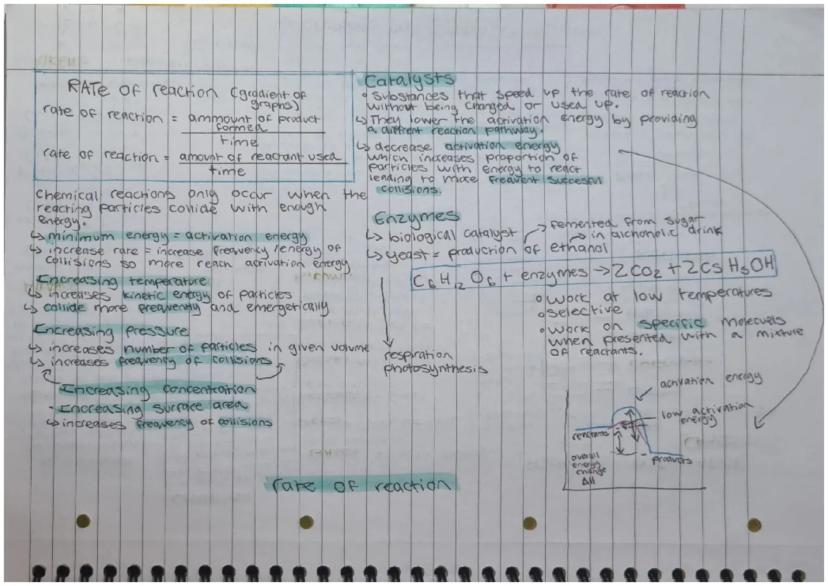 RATE of reaction (gradient of
graphs)
rate of reaction = ammount of product
formed
time
rate of reaction = amount of reactant used
time
Chemical reactions only occur when the
reacting particles collide with enough
energy.
↳ minimum energy = activation energy
↳ increase rate = increase frequency/energy of
collisions so more reach activation energy
Increasing temperature
↳ increases kinetic energy of particles
↳ collide more frequently and energetically
Increasing Pressure
↳ increases number of particles in given volume
↳ increases frequency of collisions
Increasing concentration
- Increasing surface area
↳ increases frequency of collisions
Catalysts
• Substances that speed up the rate of reaction
without being changed or used up.
↳ They lower the activation energy by providing
a diffrent reaction pathway.
↳ decrease activation energy
which increases proportion of
particles with energy to react
leading to more frequent succesful
collisions.
Enzymes
↳ biological catalyst
→ femented from sugar
→ in alchoholic drink
↳ yeast = production of ethanol
C6H12O6 + enzymes → 2CO2 + 2C5H5OH
respiration
photosynthesis
o work at low temperatures
o selective
o work on specific molecuels
when presented with a mixture
of reactants.
activation energy
low activation
energy
reactants
products
overall
energy
change
ΔH
rate of reaction